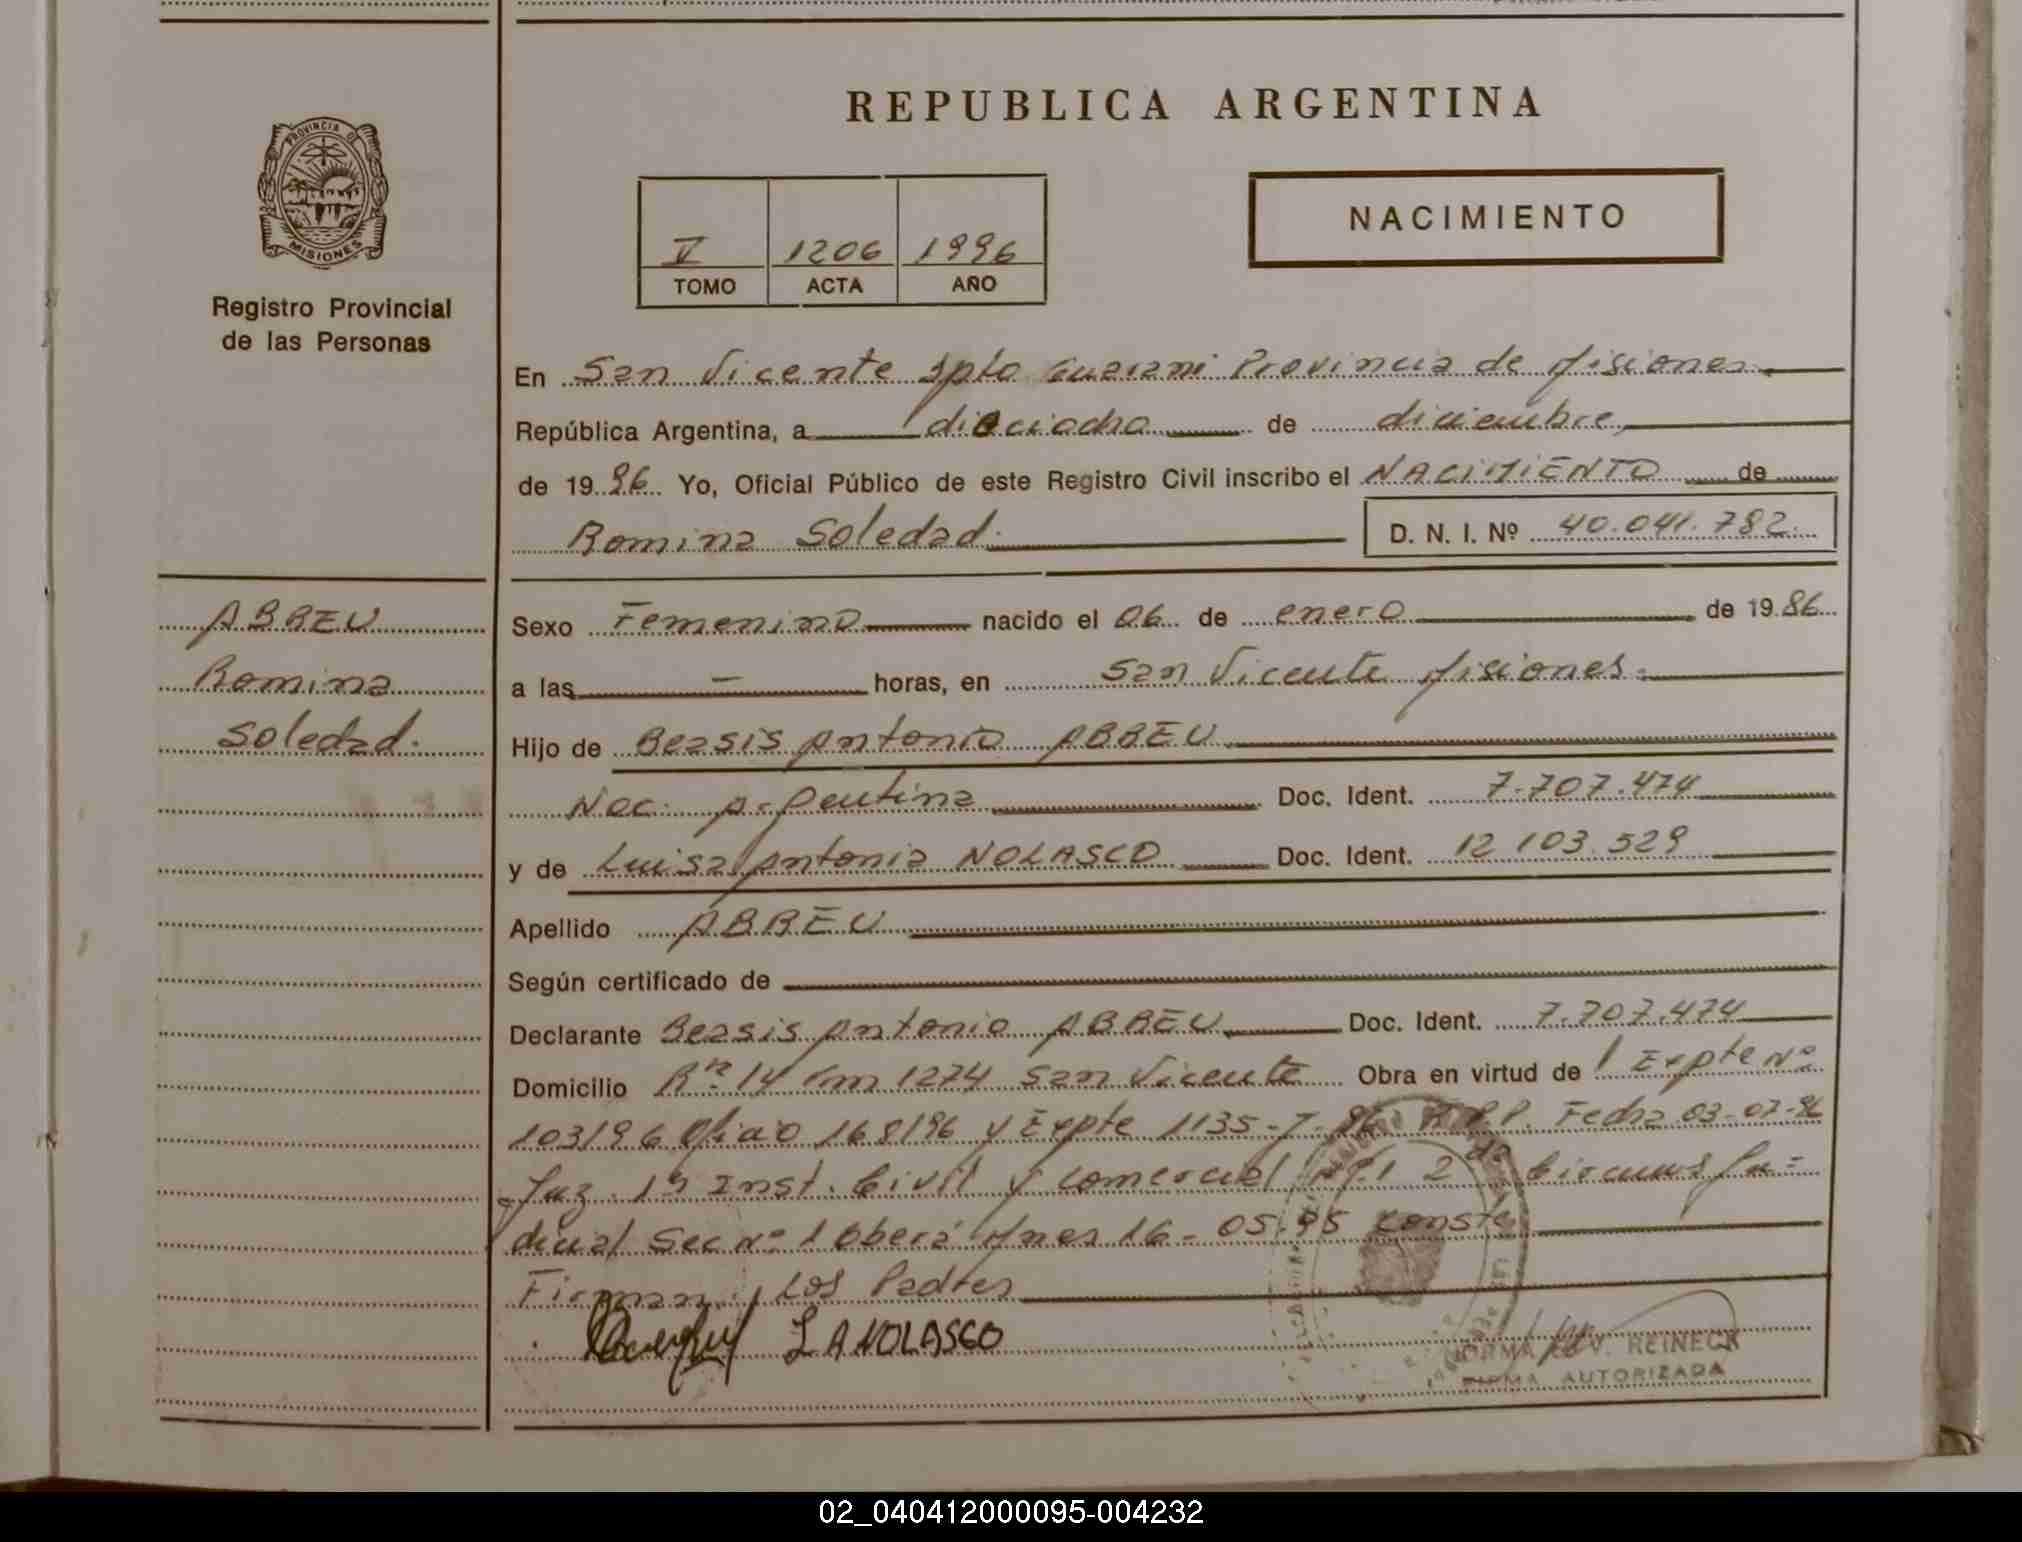 REPUBLICA ARGENTINA
PROVINCIA DE
MISIONES
Registro Provincial
de las Personas
NACIMIENTO
V 1206 1996
TOMO ACTA AÑO
En San Vicente Dpto Guarani Provincia de Misiones
República Argentina, a dieciocho de diciembre
de 1996 Yo, Oficial Público de este Registro Civil inscribo el NACIMIENTO de
Romina Soledad. D. N. I. Nº 40.041.782.
ABREU
Romina
Soledad.
Sexo Femenino nacido el 06 de enero de 1986
a las — horas, en San Vicente Misiones.
Hijo de Bersis Antonio ABREU
Nac. Argentina Doc. Ident. 7.707.474
y de Luisa Antonia NOLASCO Doc. Ident. 12 103.529
Apellido ABREU
Según certificado de
Declarante Bersis Antonio ABREU Doc. Ident. 7.707.474
Domicilio R nº 14 Km 1274 San Vicente Obra en virtud de Expte Nº
103/96 Oficio 168/96 y Expte 1135-7-96 R.P.P. Fecha 03-07-96
Juz. 1ª Inst. Civil y Comercial Nº 1 2da Circuns Ju=
dicial Sec Nº 1 Oberá Mnes 16-05-95 conste
Firman Los Padres
L A NOLASCO
NORMA V. REINECK
FIRMA AUTORIZADA
02_040412000095-004232